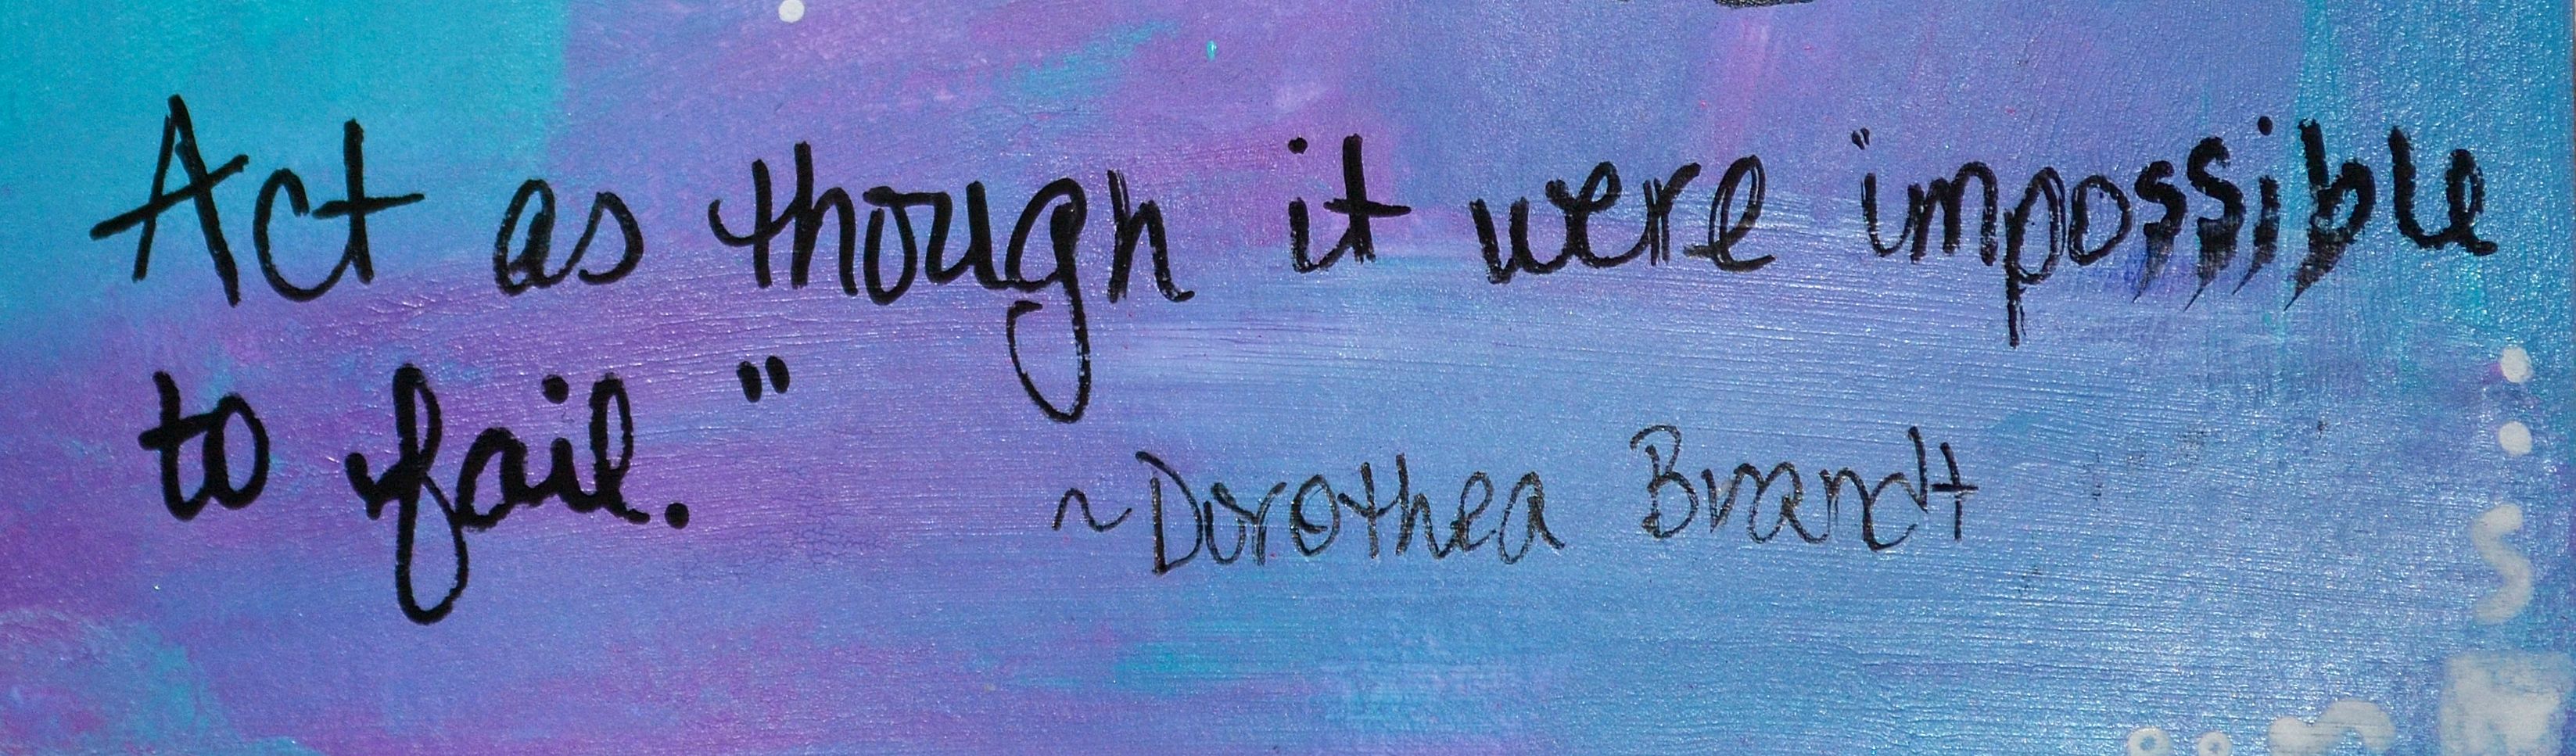 Act as though it were impossible
to fail."
~Dorothea Brandt
S